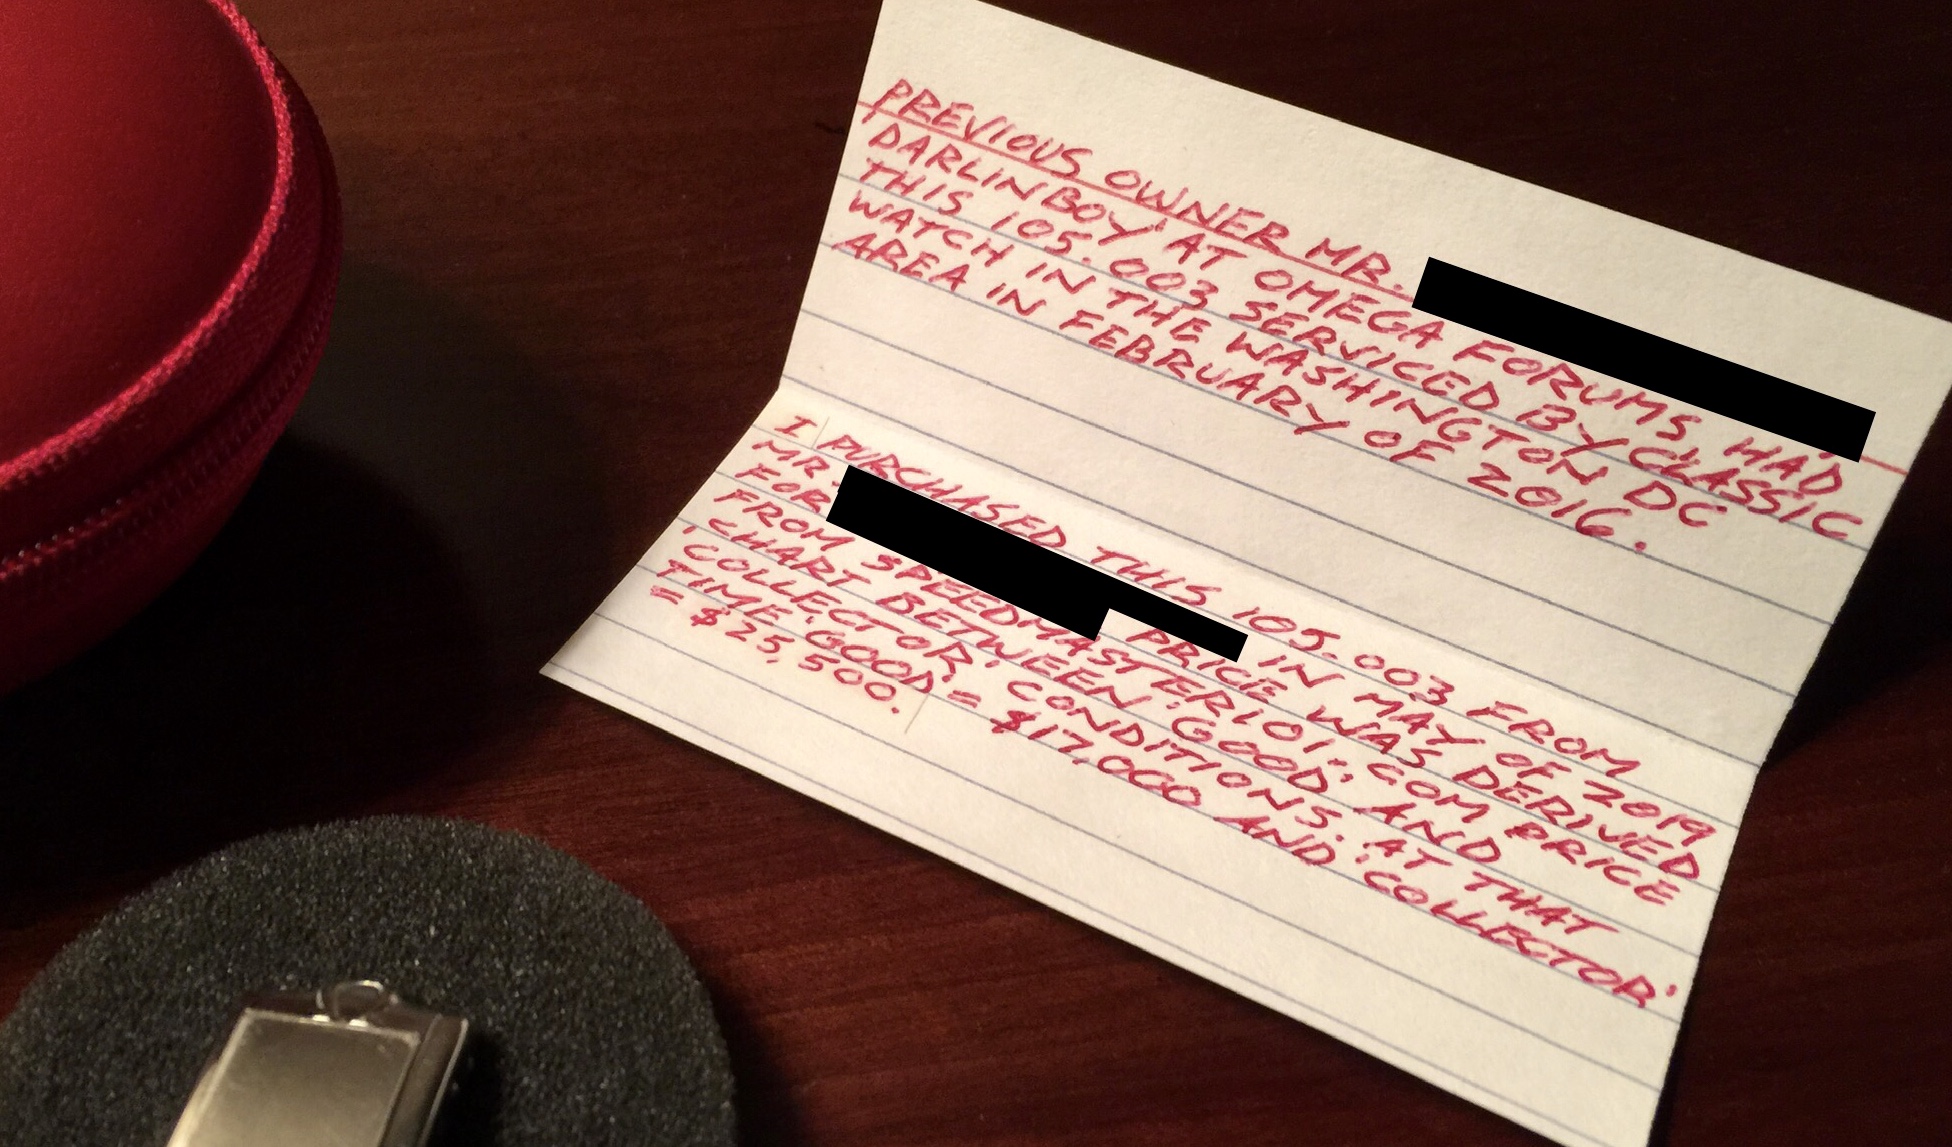 PREVIOUS OWNER MR.
DARLINBOY' AT OMEGA FORUMS, HAD
THIS 105.003 SERVICED BY CLASSIC
WATCH IN THE WASHINGTON DC
AREA IN FEBRUARY OF 2016.
I PURCHASED THIS 105.003 FROM
MR. IN MAY OF 2019
FOR PRICE WAS DERIVED
FROM SPEEDMASTER101.COM PRICE
CHART BETWEEN 'GOOD' AND
'COLLECTOR' CONDITIONS. AT THAT
TIME 'GOOD' = $17,000 AND 'COLLECTOR'
= $25,500.